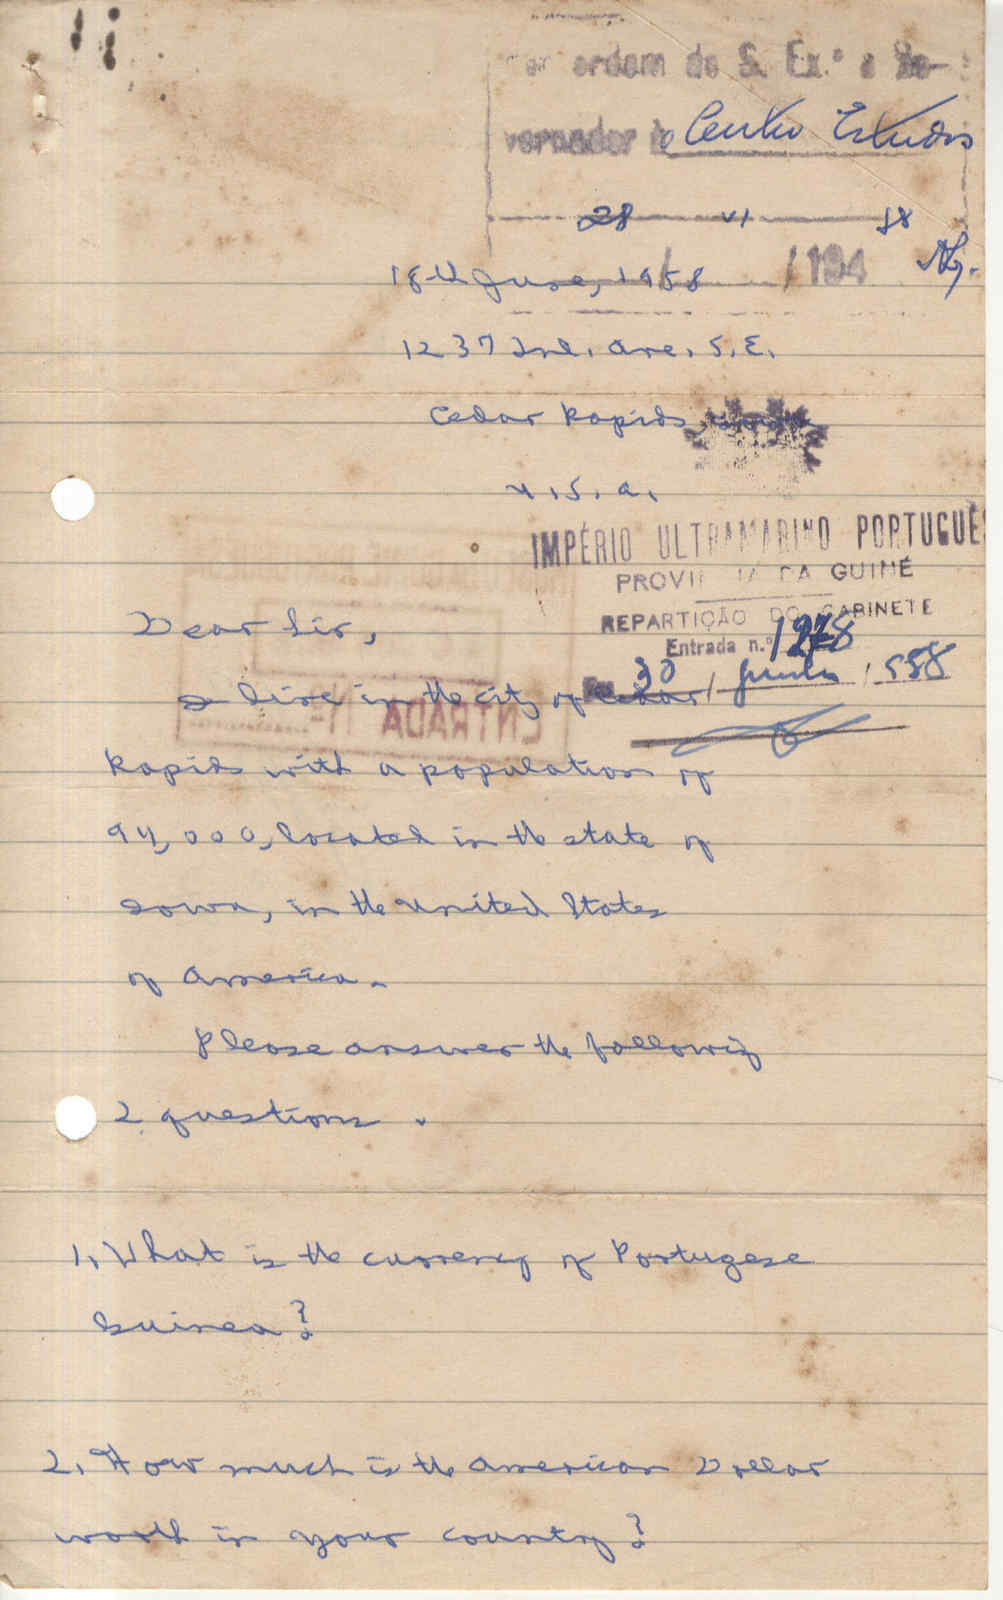 ordem de S. Ex.ª o Go-
vernador à o Centro Estudos
28 VI 58
/194
18th June, 1958
1237 2nd. Ave. S.E.
Cedar Rapids,
U.S.A.
IMPÉRIO ULTRAMARINO PORTUGUÊS
PROVINCIA DA GUINÉ
REPARTIÇÃO DO GABINETE
Entrada n.º
Em 30 / Junho / 958
Dear Sir,
I live in the city of Cedar
ENTRADA
Rapids with a population of
94,000, located in the state of
Iowa, in the United States
of America.
Please answer the following
2 questions.
1. What is the currency of Portugese
Guinea?
2. How much is the American Dollar
worth in your country?